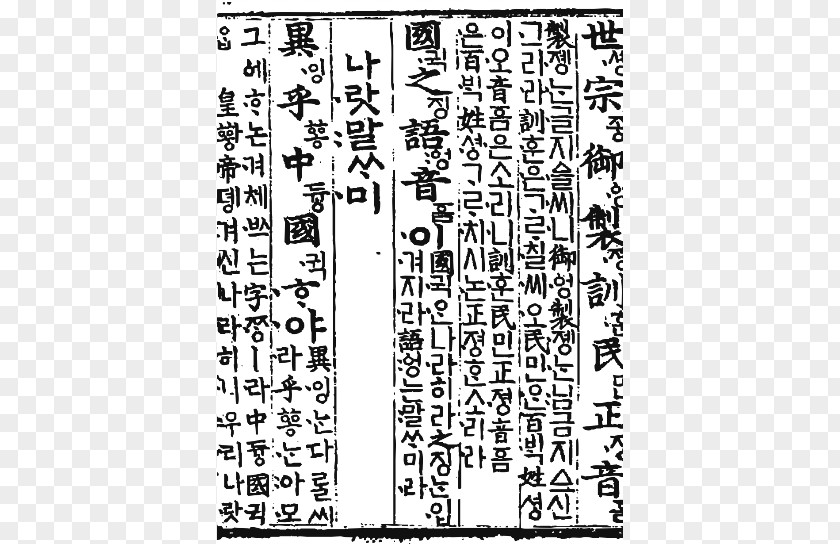 世솅宗종御ᅌᅥᆼ製졩訓훈民민正졍音ᅙᅳᆷ
製졩는글지ᅀᅳᆯ씨니御ᅌᅥᆼ製졩는님금지ᅀᅳ샨
그리라訓훈은ᄀᆞᄅᆞ칠씨오民민ᄋᆞᆫ百ᄇᆡᆨ姓셩
이오音ᅙᅳᆷ은소리니訓훈民민正졍音ᅙᅳᆷ
은百ᄇᆡᆨ姓셩ᄀᆞᄅᆞ치시논正졍ᄒᆞᆫ소리라
國귁之징語ᅌᅥᆼ音ᅙᅳᆷ이
國귁ᄋᆞᆫ나라히라之징ᄂᆞᆫ입
겨지라語ᅌᅥᆼ는말ᄊᆞ미라
나랏말ᄊᆞ미
異잉乎ᅘᅩᆼ中듀ᇰ國귁ᄒᆞ야
異잉ᄂᆞᆫ다ᄅᆞᆯ씨
라乎ᅘᅩᆼᄂᆞᆫ아모
그ᅌᅦᄒᆞ논겨체ᄡᅳ는字ᄍᆞᆼㅣ라中듀ᇰ國귁
皇ᅘᅪᆼ帝뎽겨신나라히니우리나랏